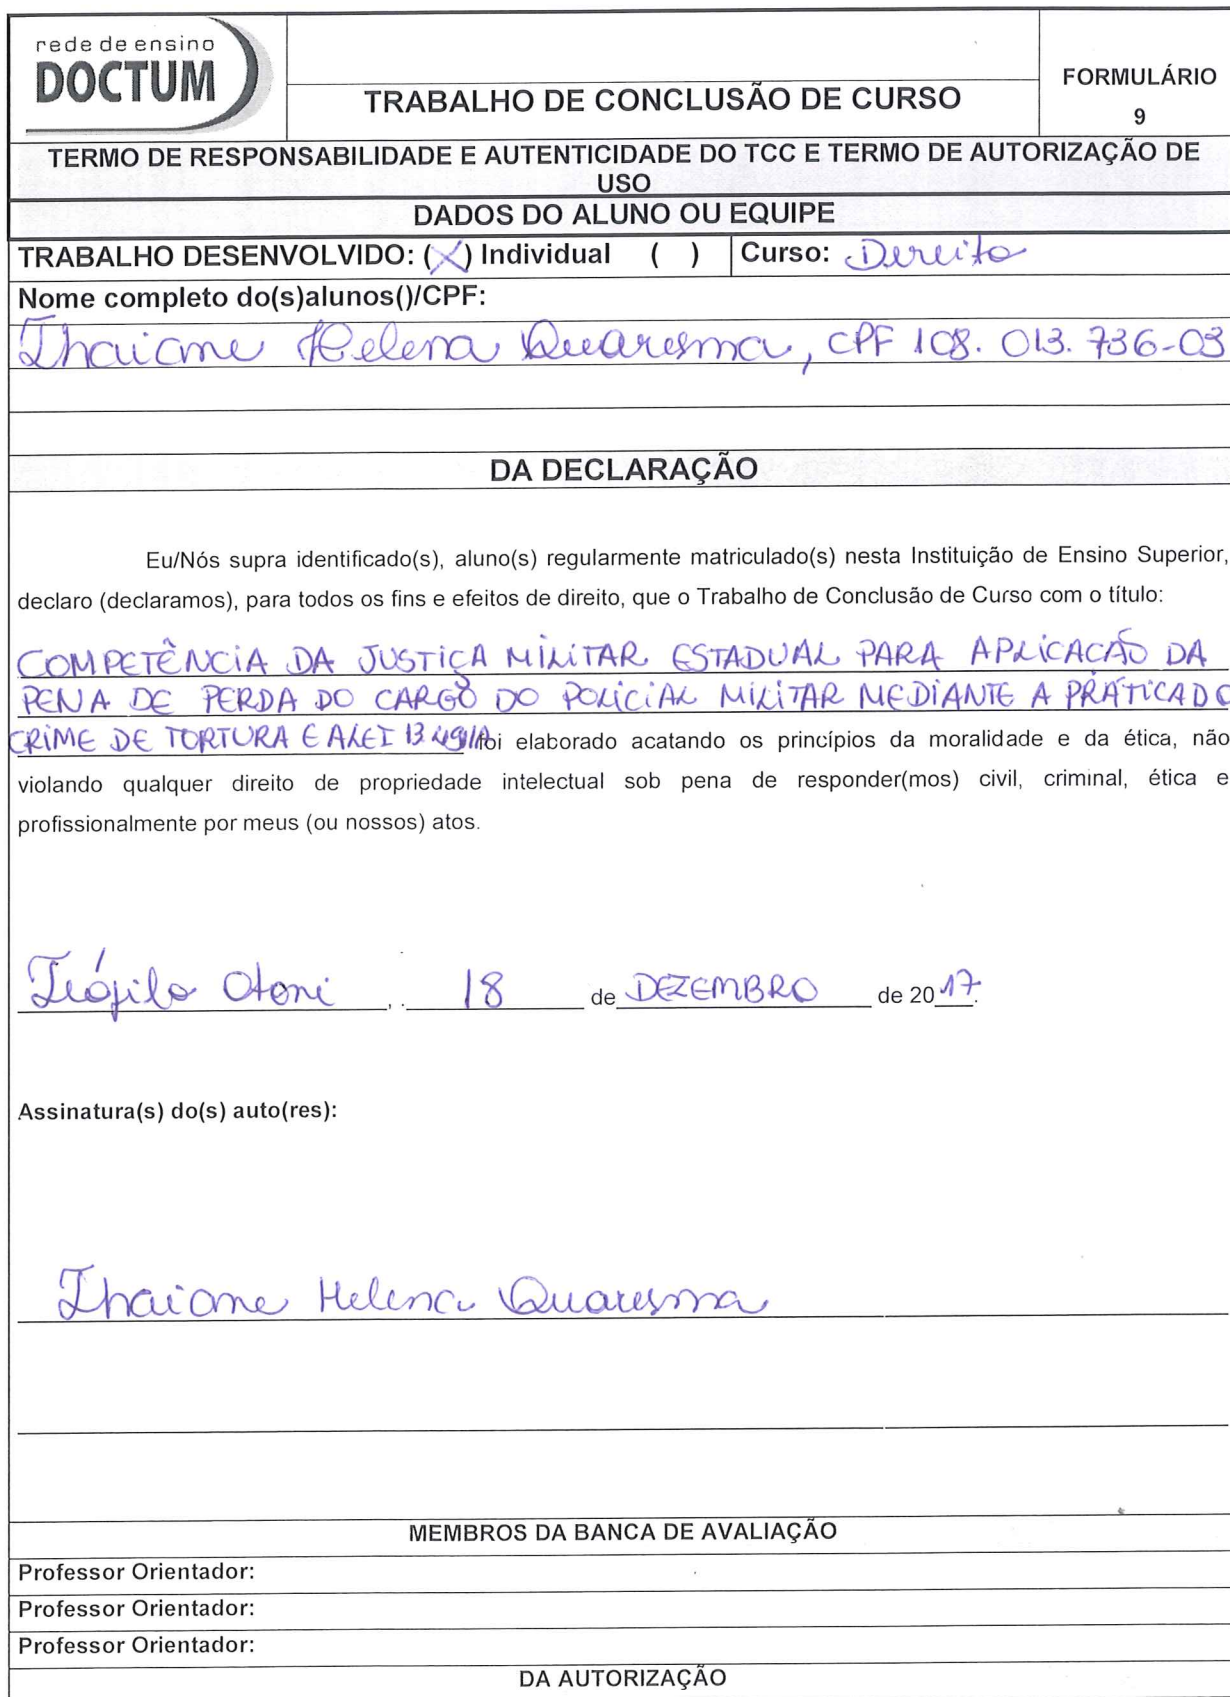 rede de ensino
DOCTUM
TRABALHO DE CONCLUSÃO DE CURSO
FORMULÁRIO
9
TERMO DE RESPONSABILIDADE E AUTENTICIDADE DO TCC E TERMO DE AUTORIZAÇÃO DE
USO
DADOS DO ALUNO OU EQUIPE
TRABALHO DESENVOLVIDO: (X) Individual ( ) Curso: Direito
Nome completo do(s)alunos()/CPF:
Thaiane Helena Quaresma, CPF 108.013.736-03
DA DECLARAÇÃO
Eu/Nós supra identificado(s), aluno(s) regularmente matriculado(s) nesta Instituição de Ensino Superior,
declaro (declaramos), para todos os fins e efeitos de direito, que o Trabalho de Conclusão de Curso com o título:
COMPETÊNCIA DA JUSTIÇA MILITAR ESTADUAL PARA APLICACÃO DA
PENA DE PERDA DO CARGO DO POLICIAL MILITAR MEDIANTE A PRÁTICA DO
CRIME DE TORTURA E A LEI 13.491/17 foi elaborado acatando os princípios da moralidade e da ética, não
violando qualquer direito de propriedade intelectual sob pena de responder(mos) civil, criminal, ética e
profissionalmente por meus (ou nossos) atos.
Teófilo Otoni, 18 de DEZEMBRO de 2017.
Assinatura(s) do(s) auto(res):
Thaiane Helena Quaresma
MEMBROS DA BANCA DE AVALIAÇÃO
Professor Orientador:
Professor Orientador:
Professor Orientador:
DA AUTORIZAÇÃO